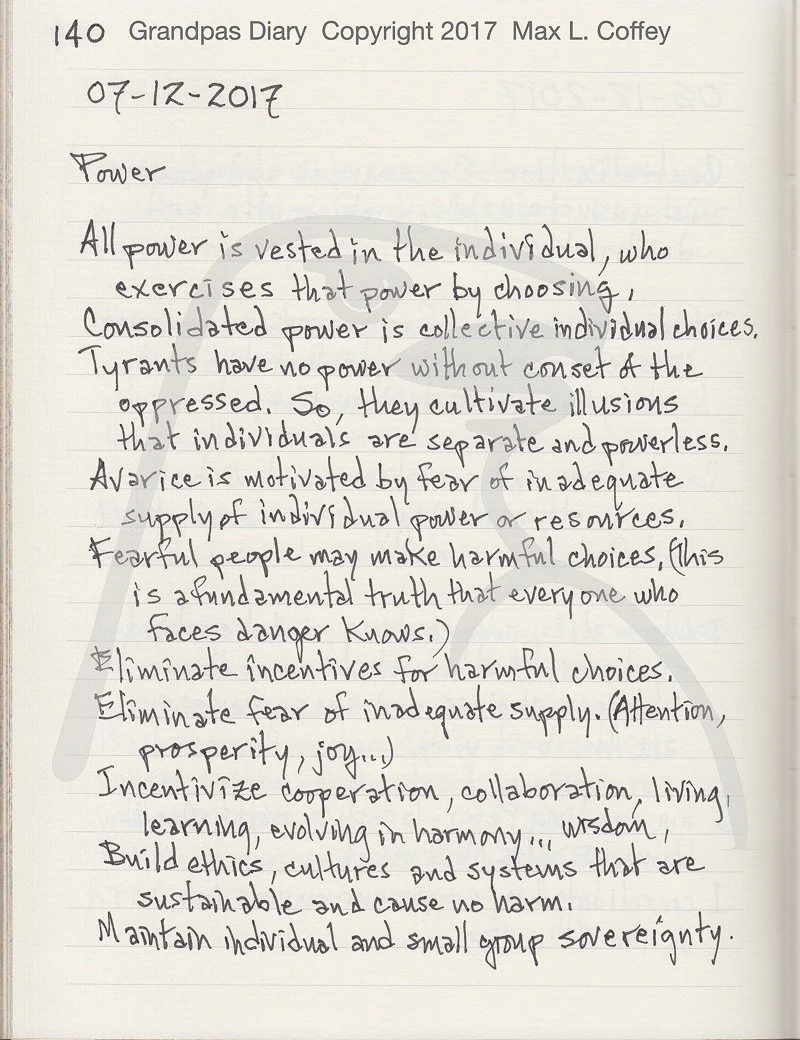 140 Grandpas Diary Copyright 2017 Max L. Coffey
07-12-2017
Power
All power is vested in the individual, who
exercises that power by choosing,
Consolidated power is collective individual choices.
Tyrants have no power without conset of the
oppressed. So, they cultivate illusions
that individuals are separate and powerless.
Avarice is motivated by fear of inadequate
supply of individual power or resources.
Fearful people may make harmful choices. (This
is a fundamental truth that everyone who
faces danger knows.)
Eliminate incentives for harmful choices.
Eliminate fear of inadequate supply. (Attention,
prosperity, joy...)
Incentivize cooperation, collaboration, living,
learning, evolving in harmony... wisdom,
Build ethics, cultures and systems that are
sustainable and cause no harm.
Maintain individual and small group sovereignty.